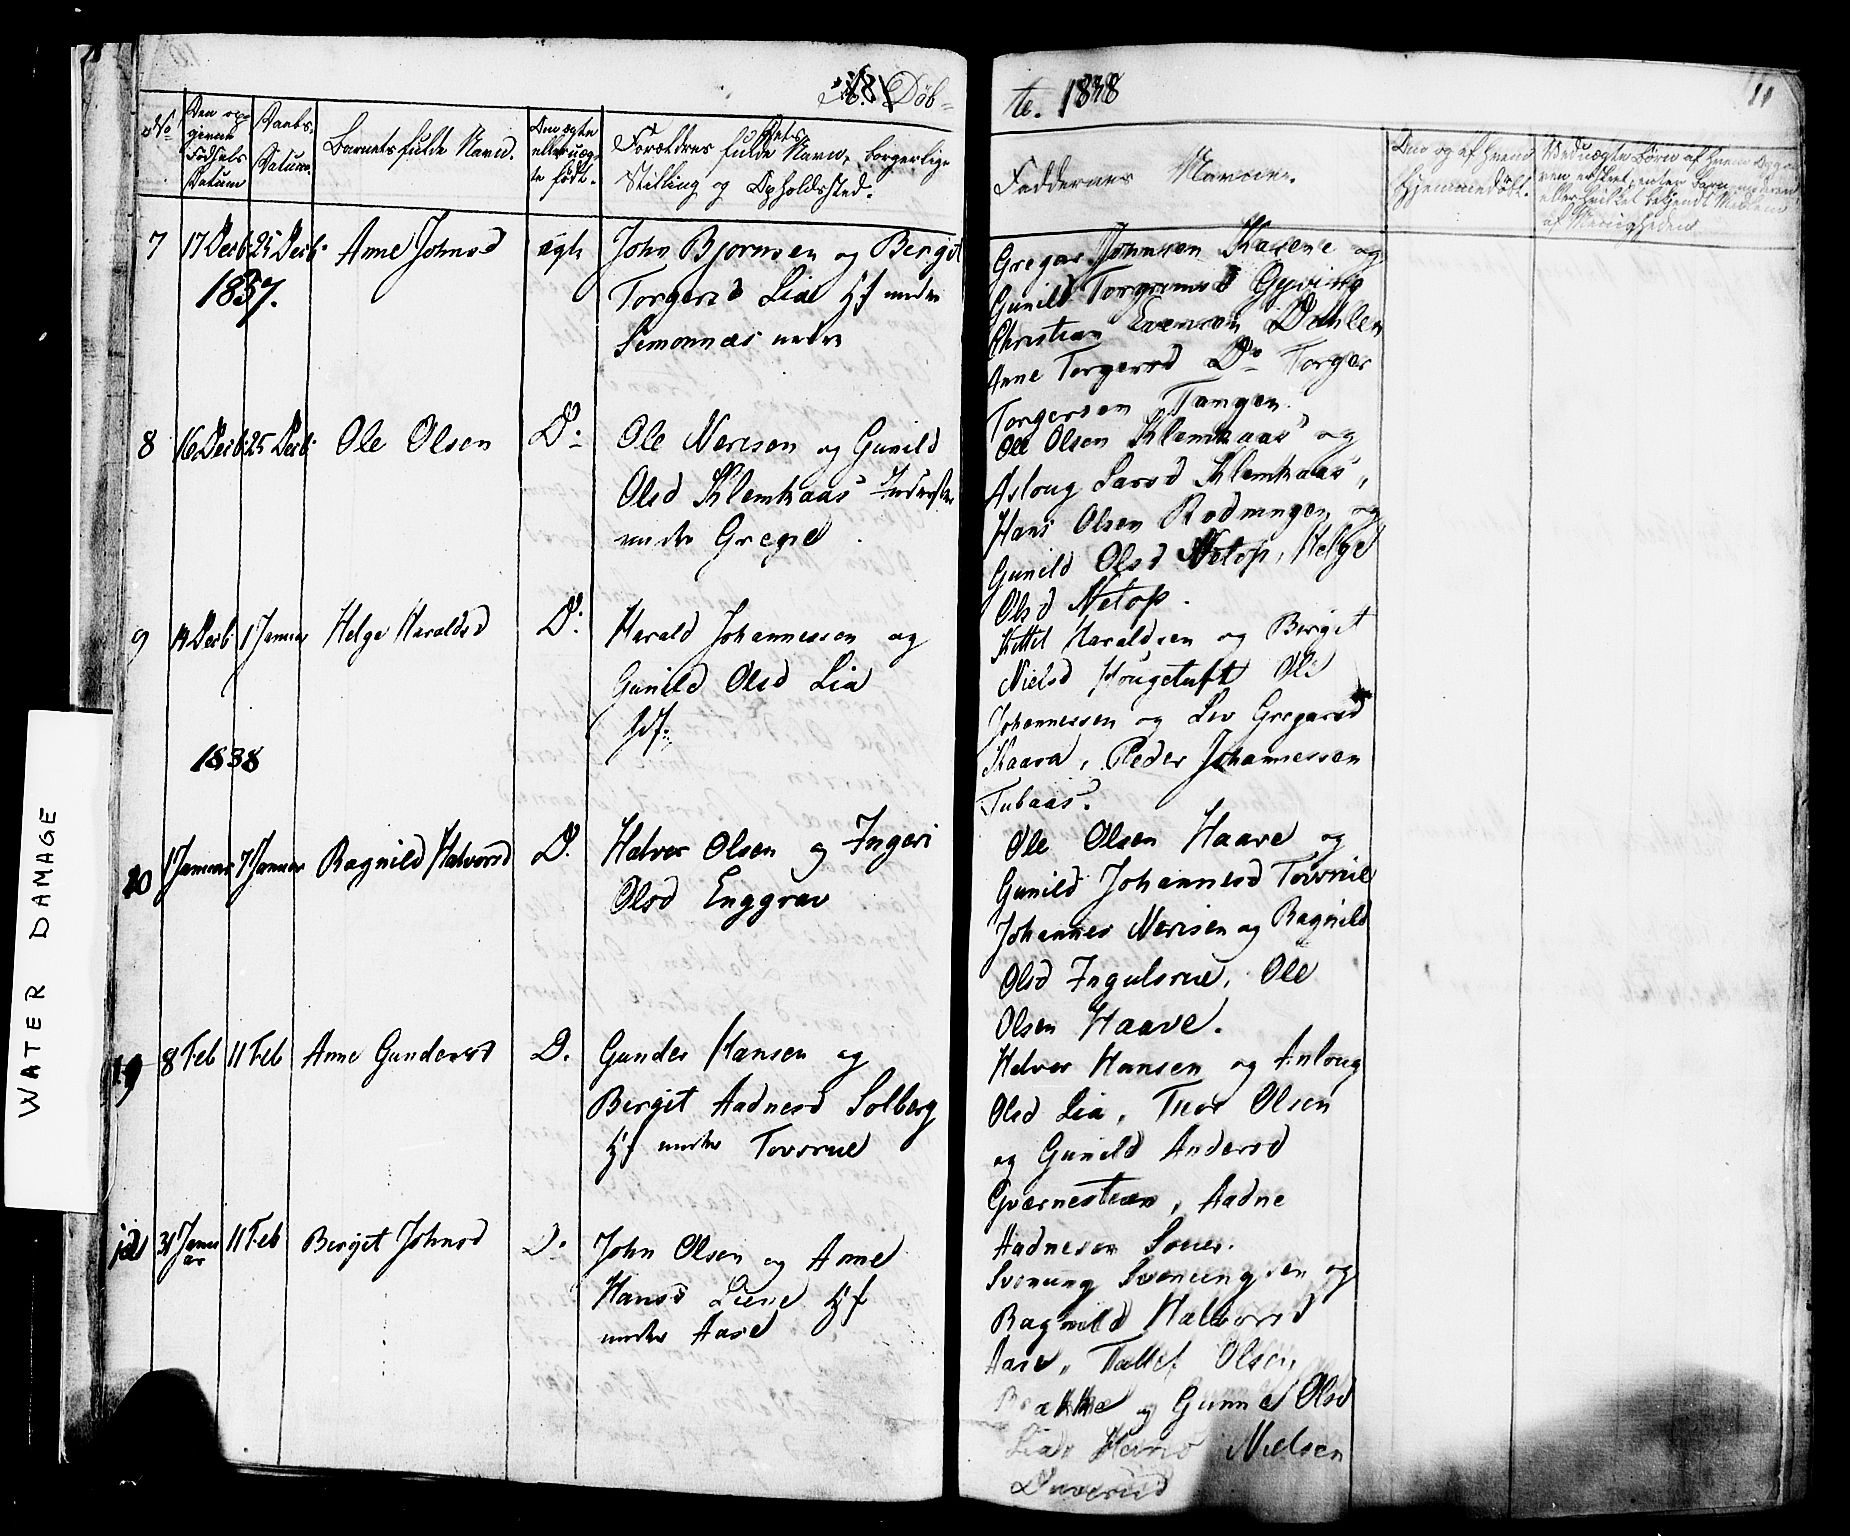 18
Døb-
te. 1838
11
No
Den op-
givne
Fødsels
Datum
Daabs-
Datum.
Barnets fulde Navn.
Om ægte
eller uæg-
te født.
Forældres fulde Navn, borgerlige
Stilling og Opholdssted.
Faddernes Navne.
Den og af hvem
Hjemmedøbt.
7 17 Decb. 25 Decb. Anne Johnsd ægte John Bjornsen og Bergit
1837. Torgersd Lia Hf under
Simonnæs nedre
Gregar Johnsen Kasene og
Gunild Torgrimsd Gyving
Christian Evensen Dahlen
Anne Torgersd Do Torger
Torgersen Tangen.
8 16 Decb. 25 Decb. Ole Olsen Do Ole Nerisen og Gunild
Olsd Klemhaas Inderster
under Gregne
Ole Olsen Klemhaas og
Asloug Larsd Klemhaas,
Hans Olsen Rodningen og
Gunild Olsd Netop, Helge
Olsd Netop.
9 14 Decb. 1 Januar Helge Haraldsd Do Harald Johannessen og
Gunild Olsd Lia
Hf.
Kittel Haraldsen og Bergit
Nielsd Hougetuft Ole
Johannessen og Liv Gregarsd
Kaasa, Peder Johannessen
Tubaas.
1838
10 1 Januar 7 Januar Ragnild Halvorsd D. Halvor Olsen og Ingeri
Olsd Enggrav
Ole Olsen Haave og
Gunild Johannesd Tovsrue
Johannes Nerisen og Ragnild
Olsd Ingulsrue, Ole
Olsen Haave.
8 Feb 11 Feb Anne Gundersd D. Gunder Hansen og
Bergit Aadnesd Solberg
Hf under Tovsrue
Halvor Hansen og Anloug
Olsd Lia, Thor Olsen
og Gunild Andersd
Qværnestrøm, Aadne
Aadnesen Soues.
31 Janu
ar 11 Feb Bergit Johnsd D. John Olsen og Anne
Hansd Liene Hf
under Aase
Svenung Svenungsen og
Ragnild Halvorsd
Aase, Tallef Olsen
Brække og Gunne Olsd
Lia, Hans Nielsen
WATER DAMAGE